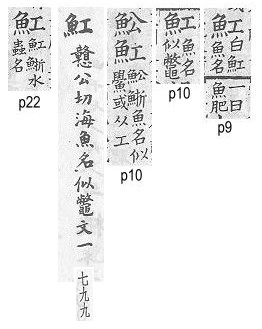 魟 魟水
蟲名
p22
魟 戇公切海魚名似鼈文一
七九九
䰸魟 䰸魚名似
鱟或从工
p10
魟 魟魚名
似鼈
p10
魟 白魟
魚名
一曰
魚肥
p9